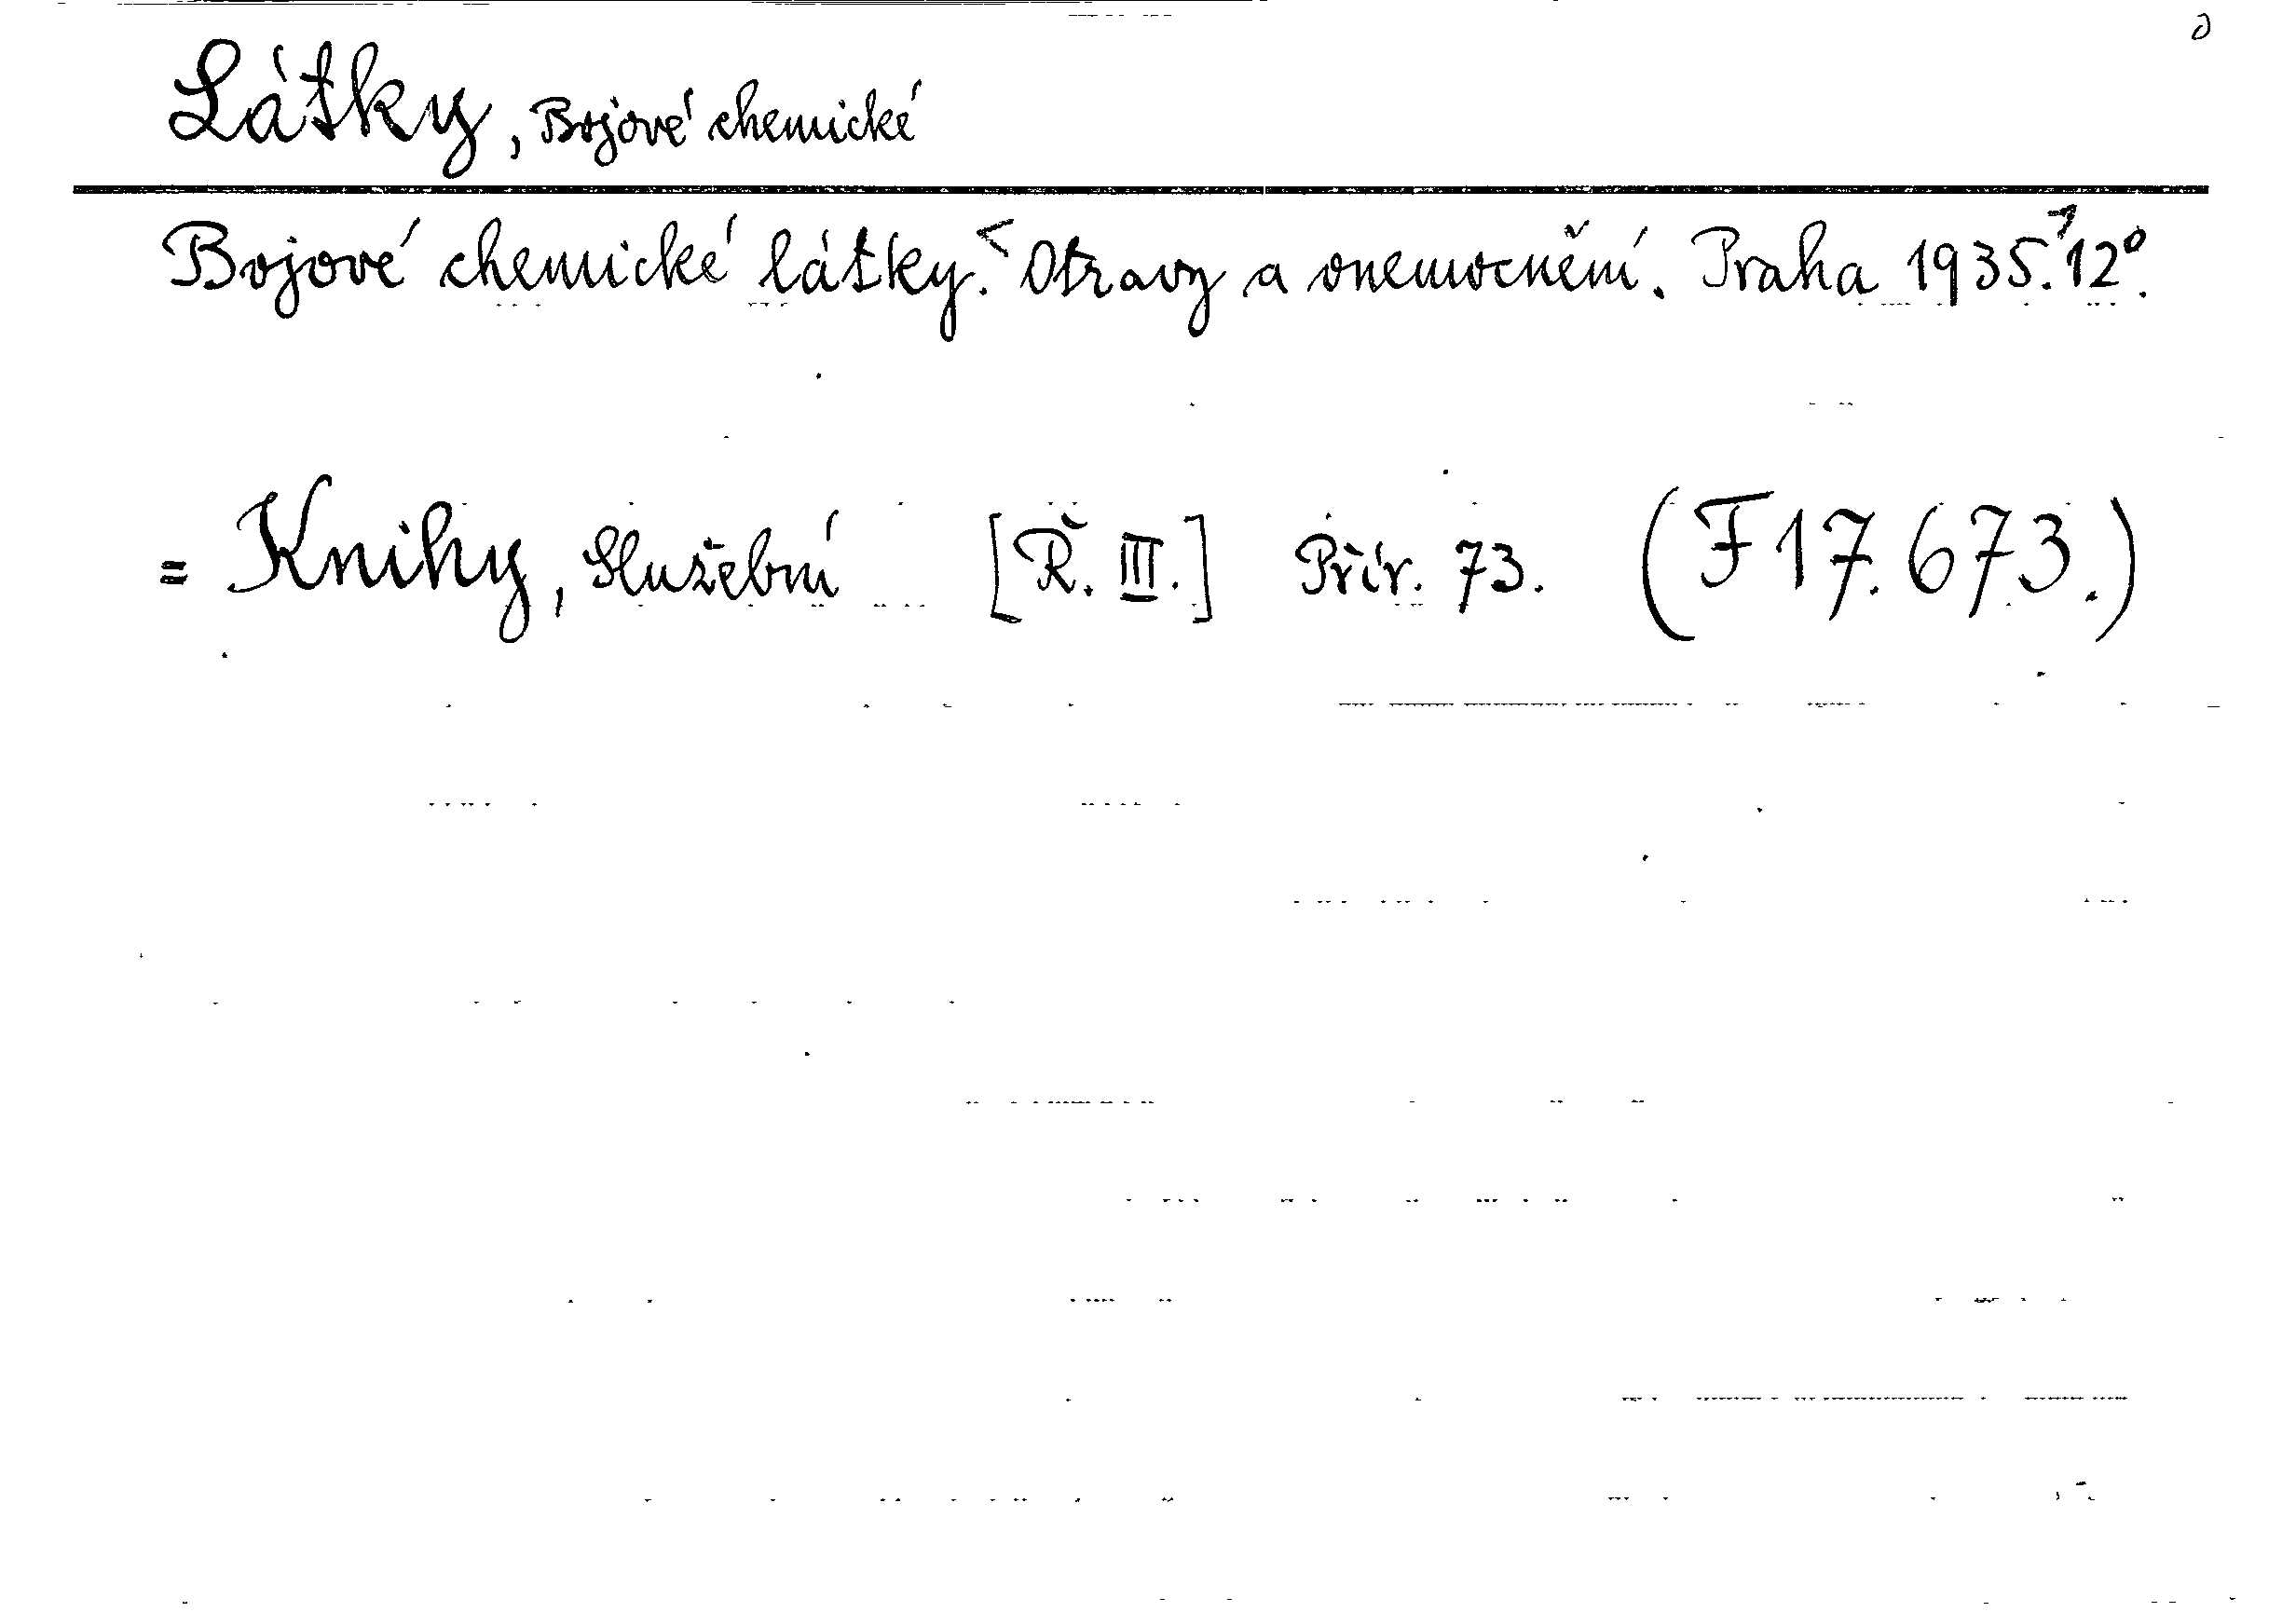 Látky, Bojové chemické
Bojové chemické látky.< Otravy a onemocnění. Praha 1935.> 12°.
= Knihy, Služební [Ř. III.] Přír. 73. (F 17.673.)